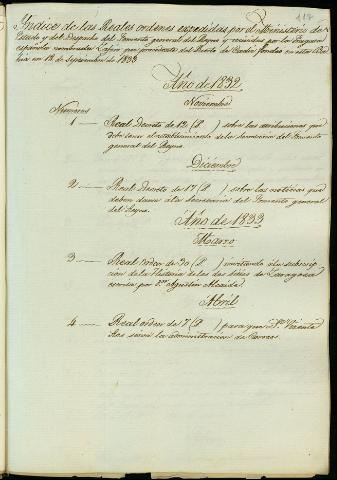 Indice de las Reales ordenes expedidas por el Ministerio de
Estado y del Despacho del Fomento general del Reyno y recividas por la fragata
española nombrada que procedente del Puerto de Cadiz fondeo en esta Ba
hia en 12 de Septiembre de 1833
Año de 1832
Noviembre
Numeros
1 — Real Decreto de 12 (P. ) sobre las atribuciones que
debe tener el establecimiento de la Secretaria del Fomento
general del Reyno.
Diciembre
2 — Real Decreto de 17 (P. ) sobre las noticias que
deben darse a la Secretaria del Fomento general
del Reyno.
Año de 1833
Marzo
3 — Real orden de 30 (P. ) invitando a la subscrip
cion de la Historia de los dos Sitios de Zaragoza
escrita por Dn. Agustin Alcaide
Abril
4 — Real orden de 7 (P. ) para que Dn. Vicente
sirva la administracion de Correos.